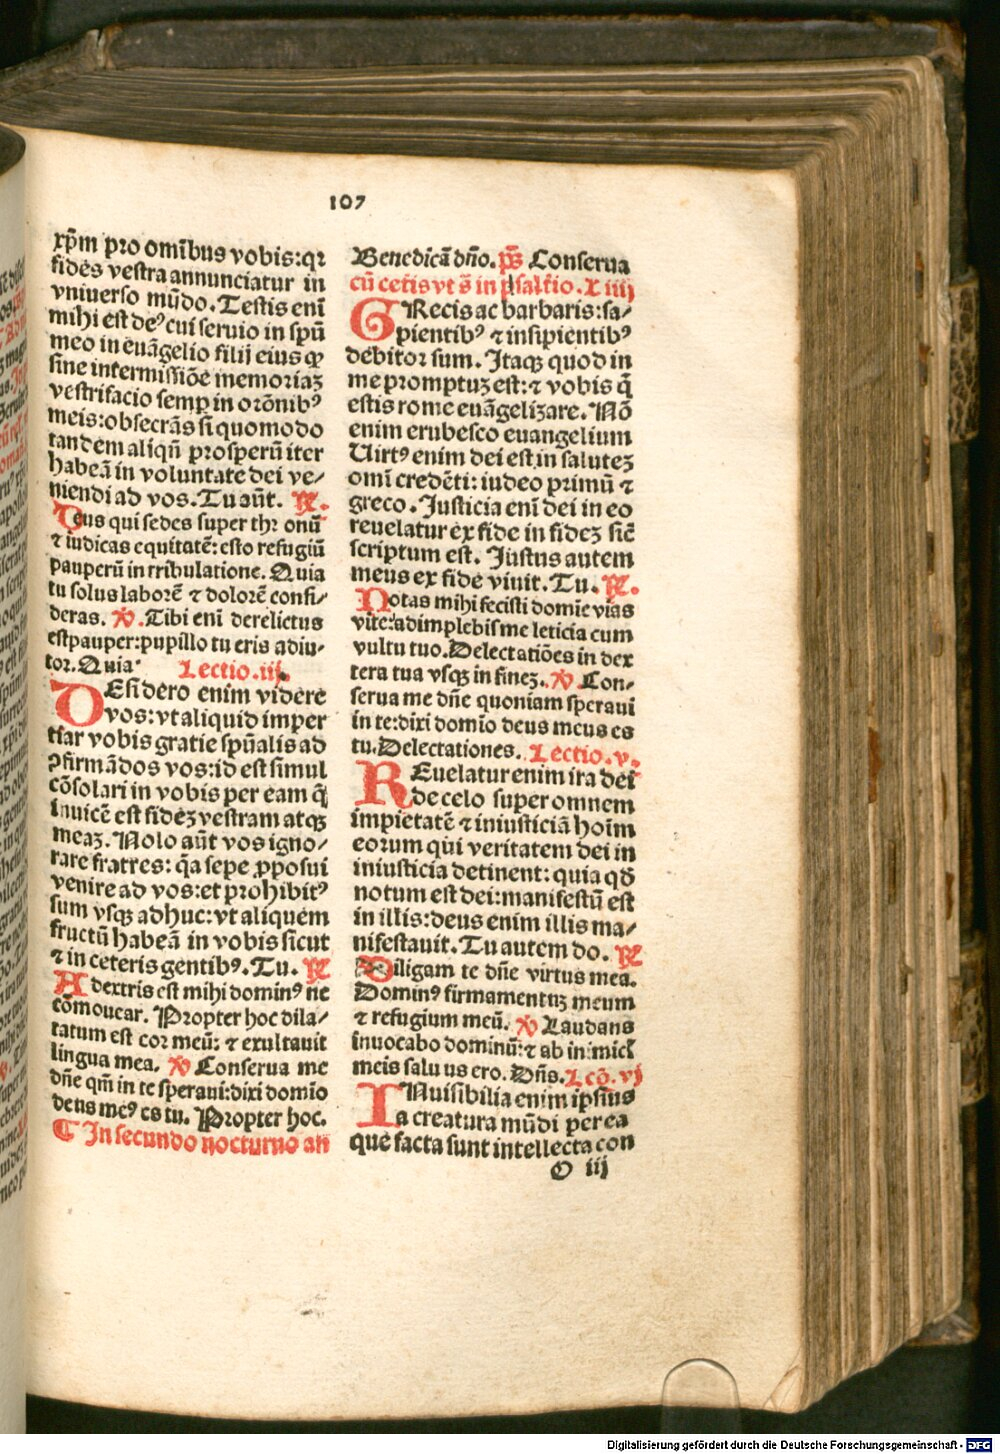 107
xp̄m pro omībus vobis: qꝛ
fides vestra annunciatur in
vniuerso mūdo. Testis enī
mihi est deꝰ cui seruio in spū
meo in euāgelio filij eius ꝙ
sine intermissiōe memoriaꝫ
vestri facio semꝑ in orōnibꝰ
meis: obsecrās si quomodo
tandem aliqn̄ prosperū iter
habeā in voluntate dei ve⸗
niendi ad vos. Tu aūt. ℞.
Deus qui sedes super thr onū
⁊ iudicas equitatē: esto refugiū
pauperū in tribulatione. Quia
tu solus laborē ⁊ dolorē consi⸗
deras. ℣. Tibi enī derelictus
est pauper: pupillo tu eris adiu⸗
tor. Quia. Lectio .iij.
DEsidero enim videre
vos: vt aliquid imper
tiar vobis gratie spūalis ad
ꝯfirmādos vos: id est simul
cōsolari in vobis per eam q̄
inuicē est fidēꝫ vestram atqꝫ
meaꝫ. Nolo aūt vos igno⸗
rare fratres: qꝛ̄a sepe ꝓposui
venire ad vos: et prohibitꝰ
sum vsqꝫ adhuc: vt aliquem
fructū habeā in vobis sicut
⁊ in ceteris gentibꝰ. Tu. ℞
A dextris est mihi dominꝰ ne
cōmouear. Propter hoc dila⸗
tatum est cor meū: ⁊ exultauit
lingua mea. ℣ Conserua me
dn̄e qm̄ in te speraui: dixi domīo
deus meꝰ es tu. Propter hoc.
¶ In secundo nocturno an̄
Benedicā dn̄o. ps̄ Conserua
cū ceteris vt s̄ in psaltīo. X iiij
GRecis ac barbaris: sa⸗
pientibꝰ ⁊ insipientibꝰ
debitor sum. Itaqꝫ quod in
me promptuꝫ est: ⁊ vobis q̄
estis rome euāgelizare. Nō
enim erubesco euangelium
Uirtꝰ enim dei est in saluteꝫ
omī credēti: iudeo primū ⁊
greco. Justicia enī dei in eo
reuelatur ex fide in fideꝫ sic̄
scriptum est. Justus autem
meus ex fide viuit. Tu. ℞.
Notas mihi fecisti domīe vias
vite: adimplebis me leticia cum
vultu tuo. Delectatiōes in dex
tera tua vsqꝫ in fineꝫ. ℣ Con⸗
serua me dn̄e quoniam speraui
in te: dixi domīo deus meus es
tu. Delectationes. Lectio. v.
REuelatur enim ira dei
de celo super omnem
impietatē ⁊ iniusticiā hoīm
eorum qui veritatem dei in
iniusticia detinent: quia qd̄
notum est dei: manifestū est
in illis: deus enim illis ma⸗
nifestauit. Tu autem do. ℞
Diligam te dn̄e virtus mea.
Dominꝰ firmamentuꝫ meum
⁊ refugium meū. ℣ Laudans
inuocabo dominū: ⁊ ab inimicī
meis saluus ero. Dn̄s. Lcō. vj
INuisibilia enim ipsius
a creatura mūdi per ea
que facta sunt intellecta con
O iij
Digitalisierung gefördert durch die Deutsche Forschungsgemeinschaft - DFG